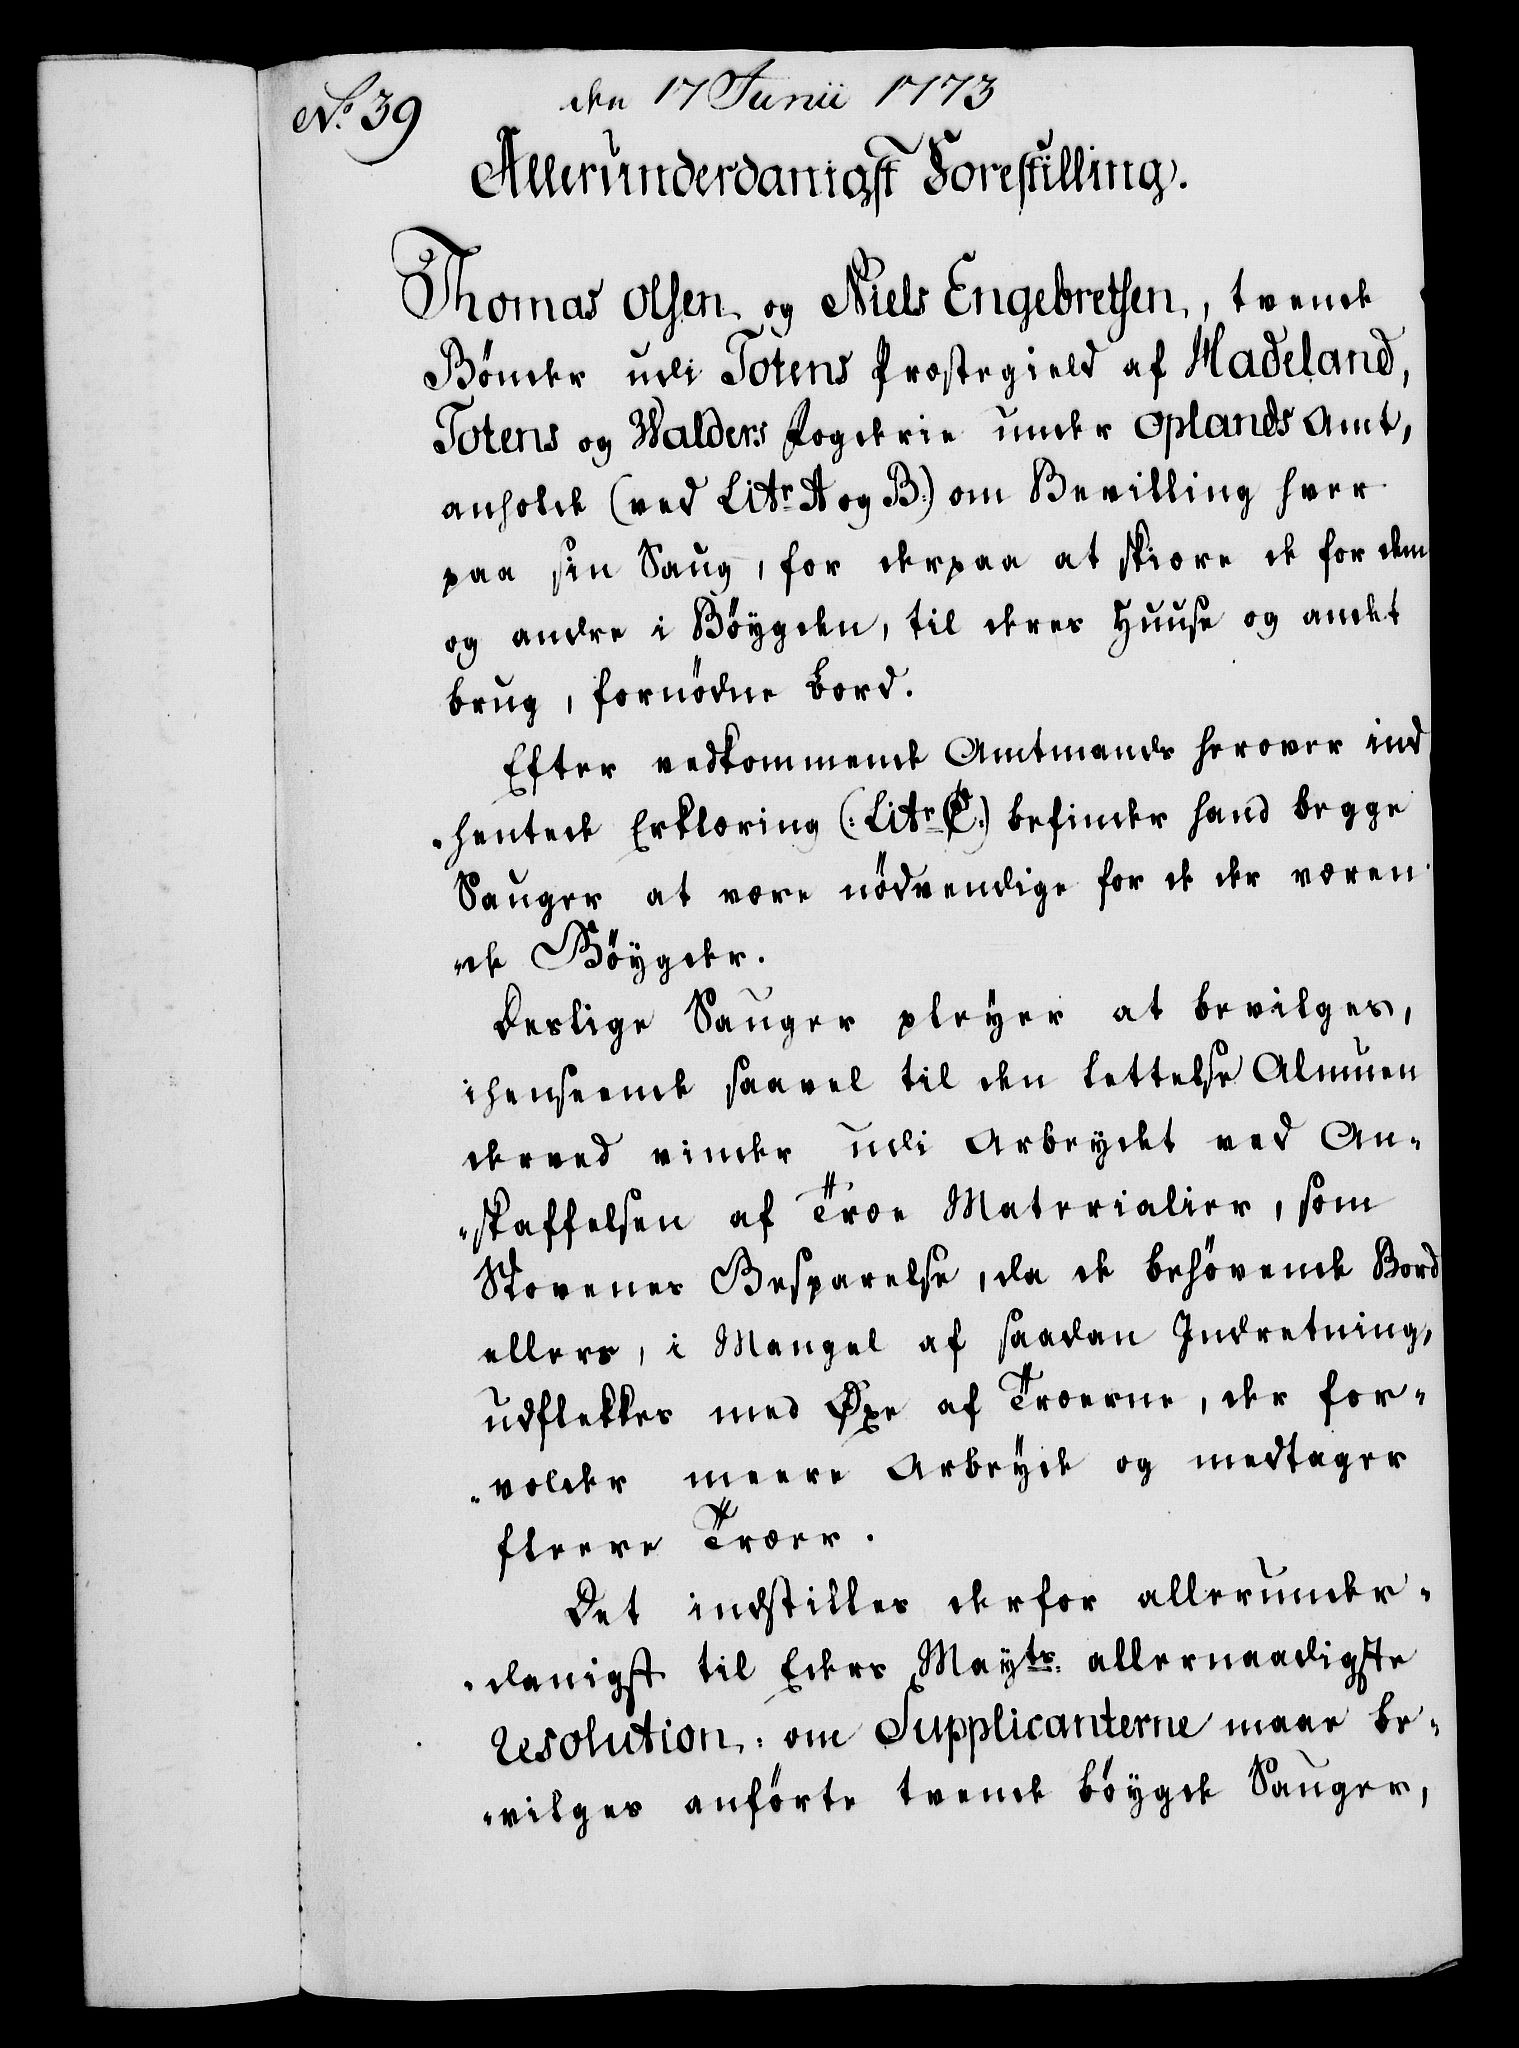 No. 39
den 17 Junii 1773
Allerunderdanigst Forestilling.
Thomas Olsen og Niels Engebretsen, tvende
Bönder udi Totens Præstegield af Hadeland,
Totens og Walders Fogderie under Oplands Amt,
anholde (ved Litr. A og B.) om Bevilling hver
paa sin Saug, for derpaa at skiære de for dem
og andre i Böygden, til deres Huuse og andet
brug, fornödne Bord.
Efter vedkommende Amtmands herover ind
hentede Erklæring (: Litr. C :) befinder hand begge
Sauger at være nödvendige for de der væren
de Böygder.
Deslige Sauger pleyer at bevilges,
ihenseende saavel til den Lettelse Almuen
derved vinder udi Arbeydet ved An-
skaffelsen af Træe Materialier, som
Skovenes Besparelse, da de behövende Bord
ellers, i Mangel af saadan Indretning,
udflekkes med Øxe af Træerne, der for-
volder meere Arbeyde og medtager
fleere Træer.
Det indstilles derfor allerunder-
danigst til Eders Mayts. allernaadigste
Resolution: om Supplicanterne maae be-
vilges anförte tvende böygde Sauger,